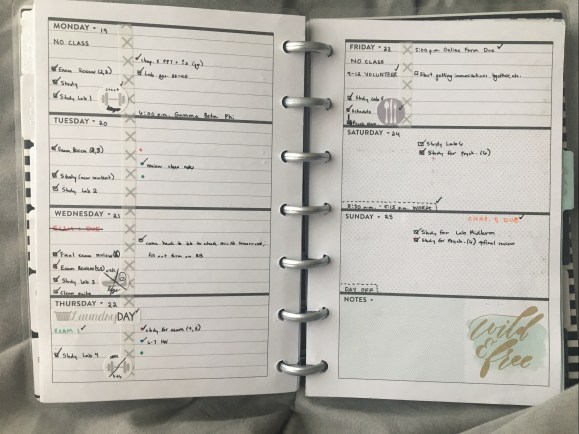 MONDAY • 19
NO CLASS
Exam Review (2,3)
Study
Study Lab 1
Lab
6:00 p.m. Gamma Beta Phi
TUESDAY • 20
Exam Review (2,3)
Study (new content)
Study Lab 2
review class notes
WEDNESDAY • 21
EXAM 1 DUE
Final exam review
Exam Review
Study Lab 3
Clean
come back to lab to check results tomorrow,
fill out form on BB
THURSDAY • 22
Laundry DAY
EXAM 1
Study Lab 4
study for exam (4,5)
FRIDAY • 23
5:00 p.m. Online Form Due
NO CLASS
9-12 VOLUNTEER
Start getting immunizations together, etc.
Study Lab 5
Schedule
SATURDAY • 24
Study Lab 6
Study for psych. (6)
8:30 a.m. - 5:15 p.m. WORK
SUNDAY • 25
CHAP. 8 DUE
Study for Lab Midterm
Study for Psych. (6) + final review
DAY OFF
NOTES •
wild
& free